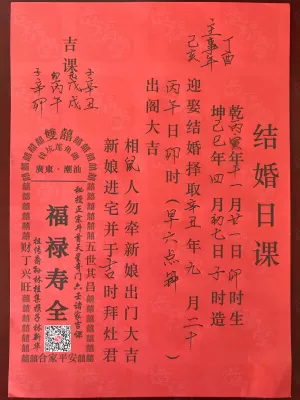 结婚日课
乾丙寅年十一月廿一日卯时生
坤己巳年四月初七日子时造
主事 丁酉年 己亥
迎娶结婚择取辛丑年九月二十
丙午日卯时（早六点
出阁大吉
相鼠人勿牵新娘出门大吉
新娘进宅并于吉时拜灶君
吉课
辛丑
戊戌
丙午
辛卯
雙囍
廣東·潮汕
五世其昌
福禄寿全
财丁兴旺
合家平安